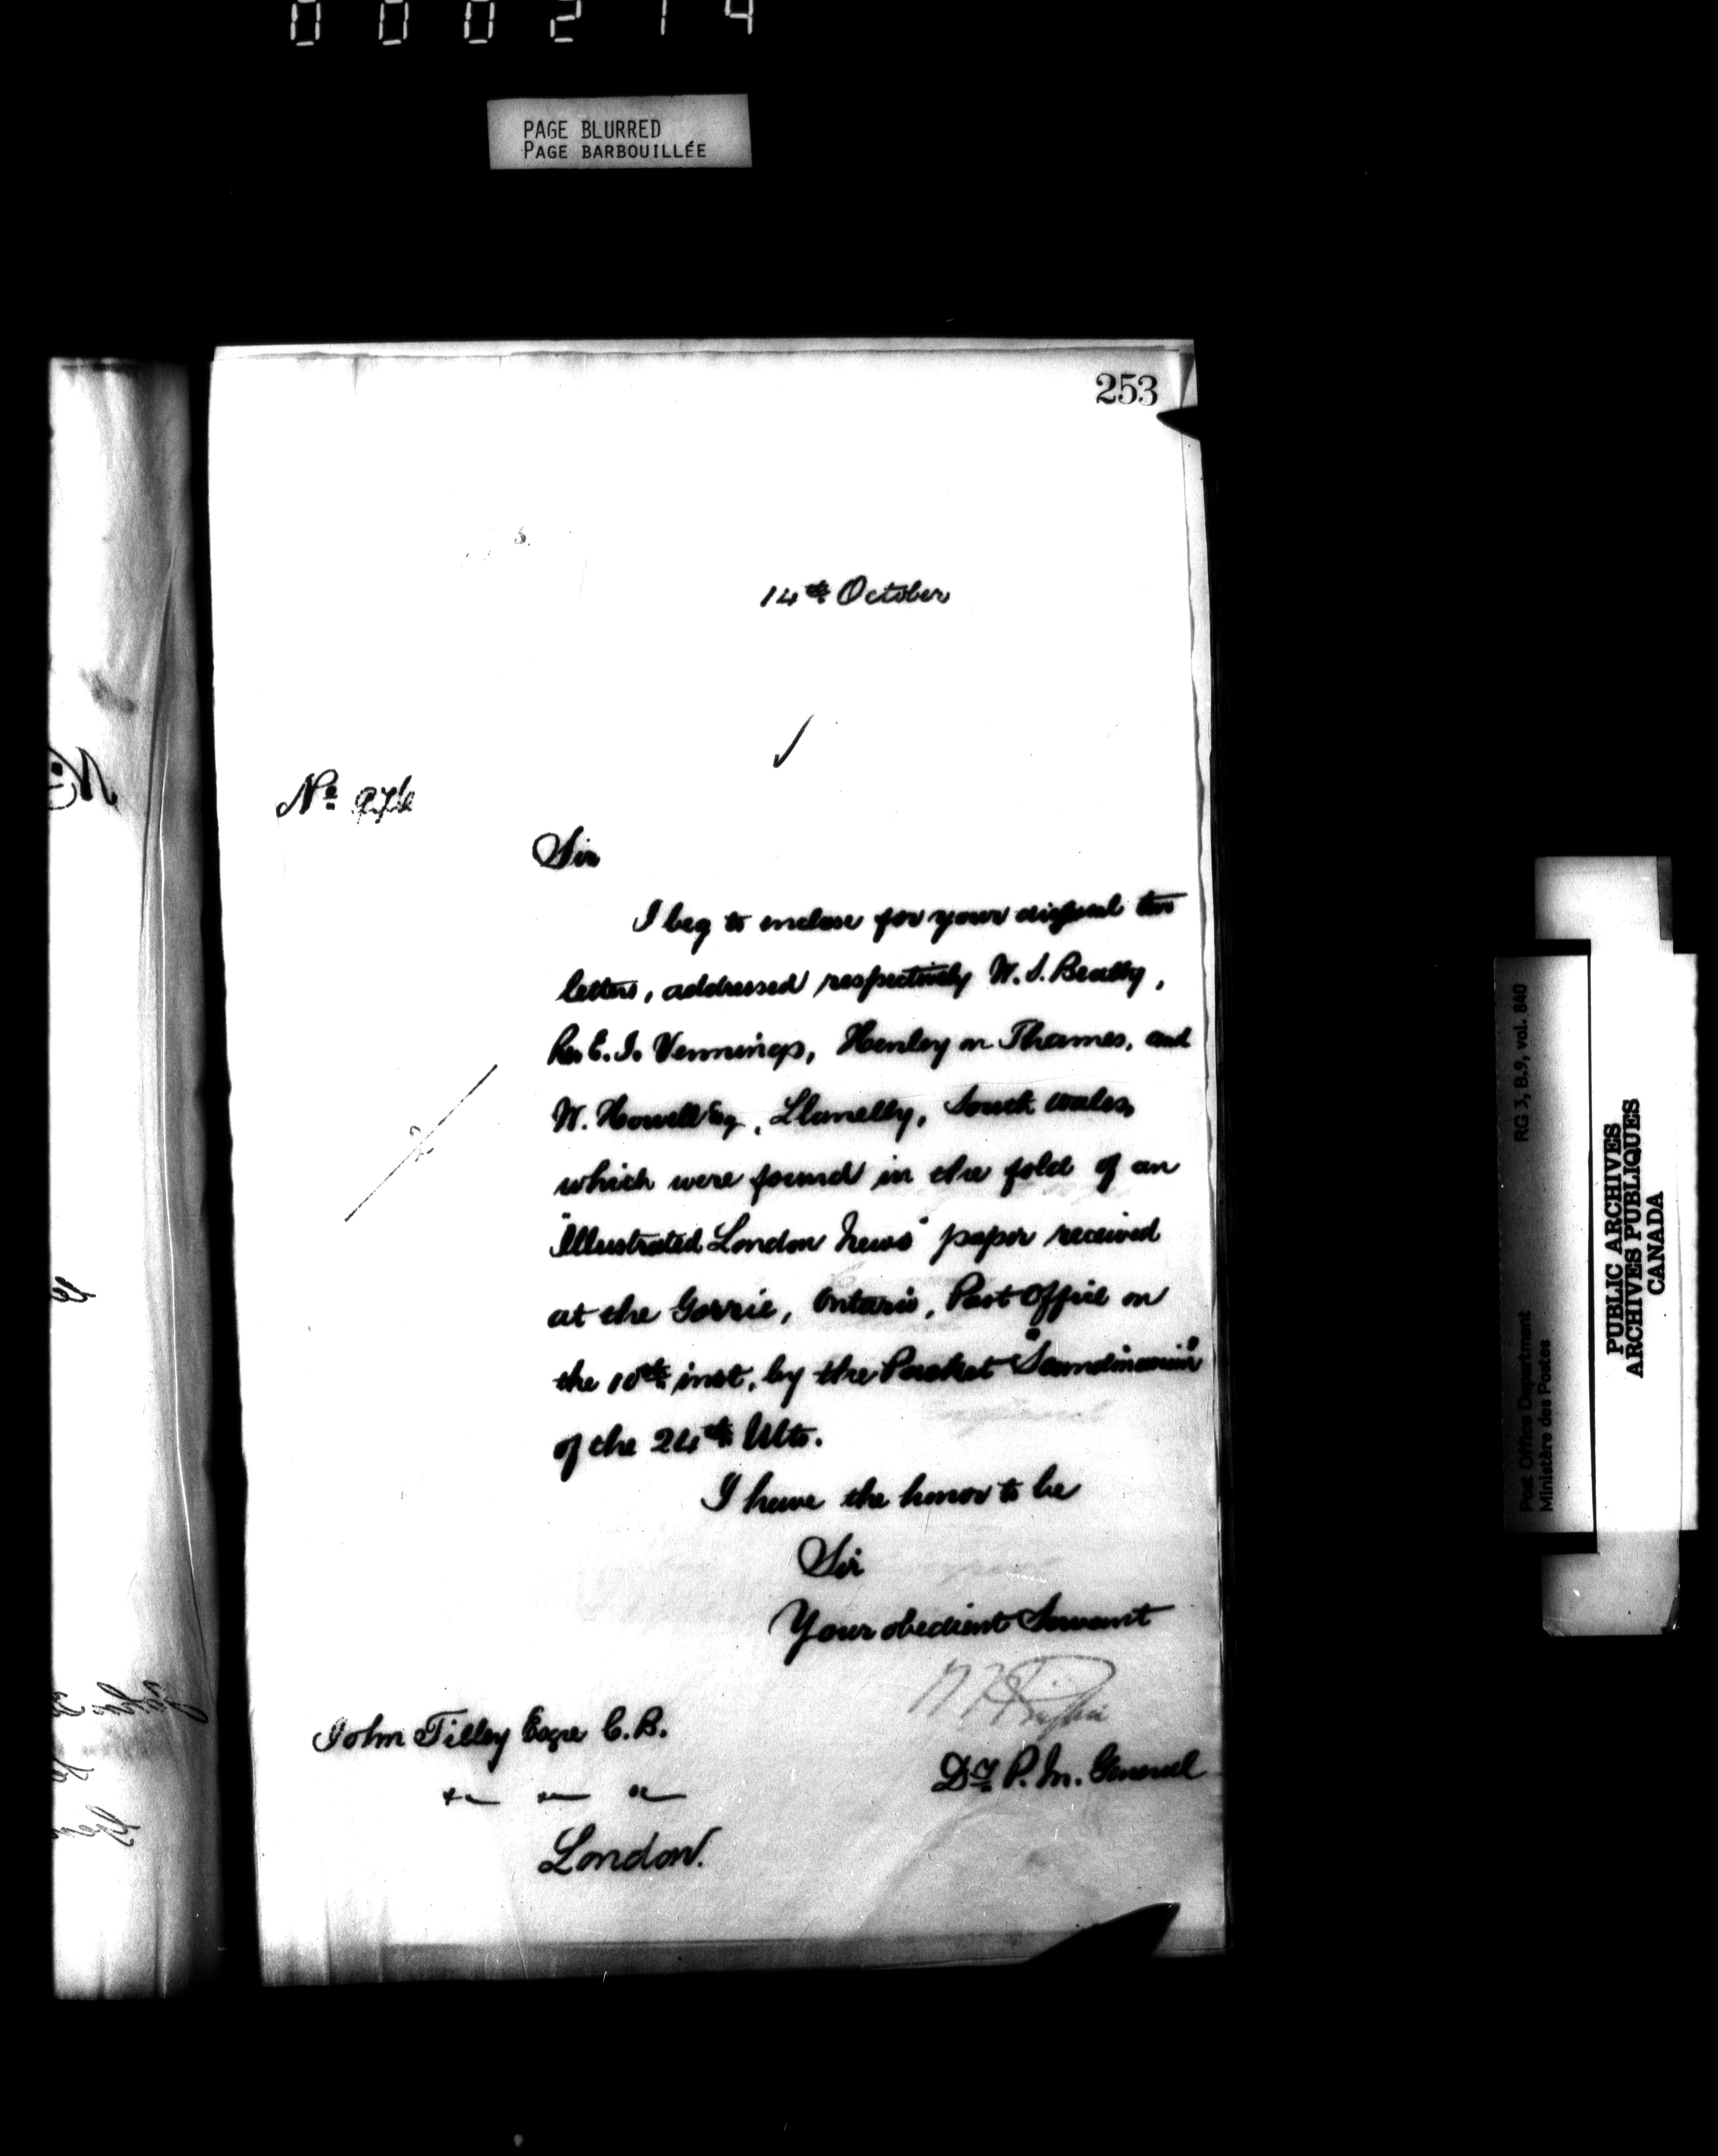 000214
PAGE BLURRED
PAGE BARBOUILLÉE
253
14th October
No 976
Sir
I beg to enclose for your disposal two
letters, addressed respectively W. S. Beatty,
Rev. E. J. Vennings, Henley on Thames, and
W. Howell Esq, Llanelly, South Wales,
which were found in the fold of an
"Illustrated London News" paper received
at the Gorrie, Ontario, Post Office on
the 10th inst, by the Packet "Scandinavian"
of the 24th Ulto.
I have the honor to be
Sir
Your obedient Servant
Dy P. M. General
John Tilley Esqre C. B.
&c &c &c
London.
RG 3, B.9, vol. 840
Post Office Department
Ministère des Postes
PUBLIC ARCHIVES
ARCHIVES PUBLIQUES
CANADA